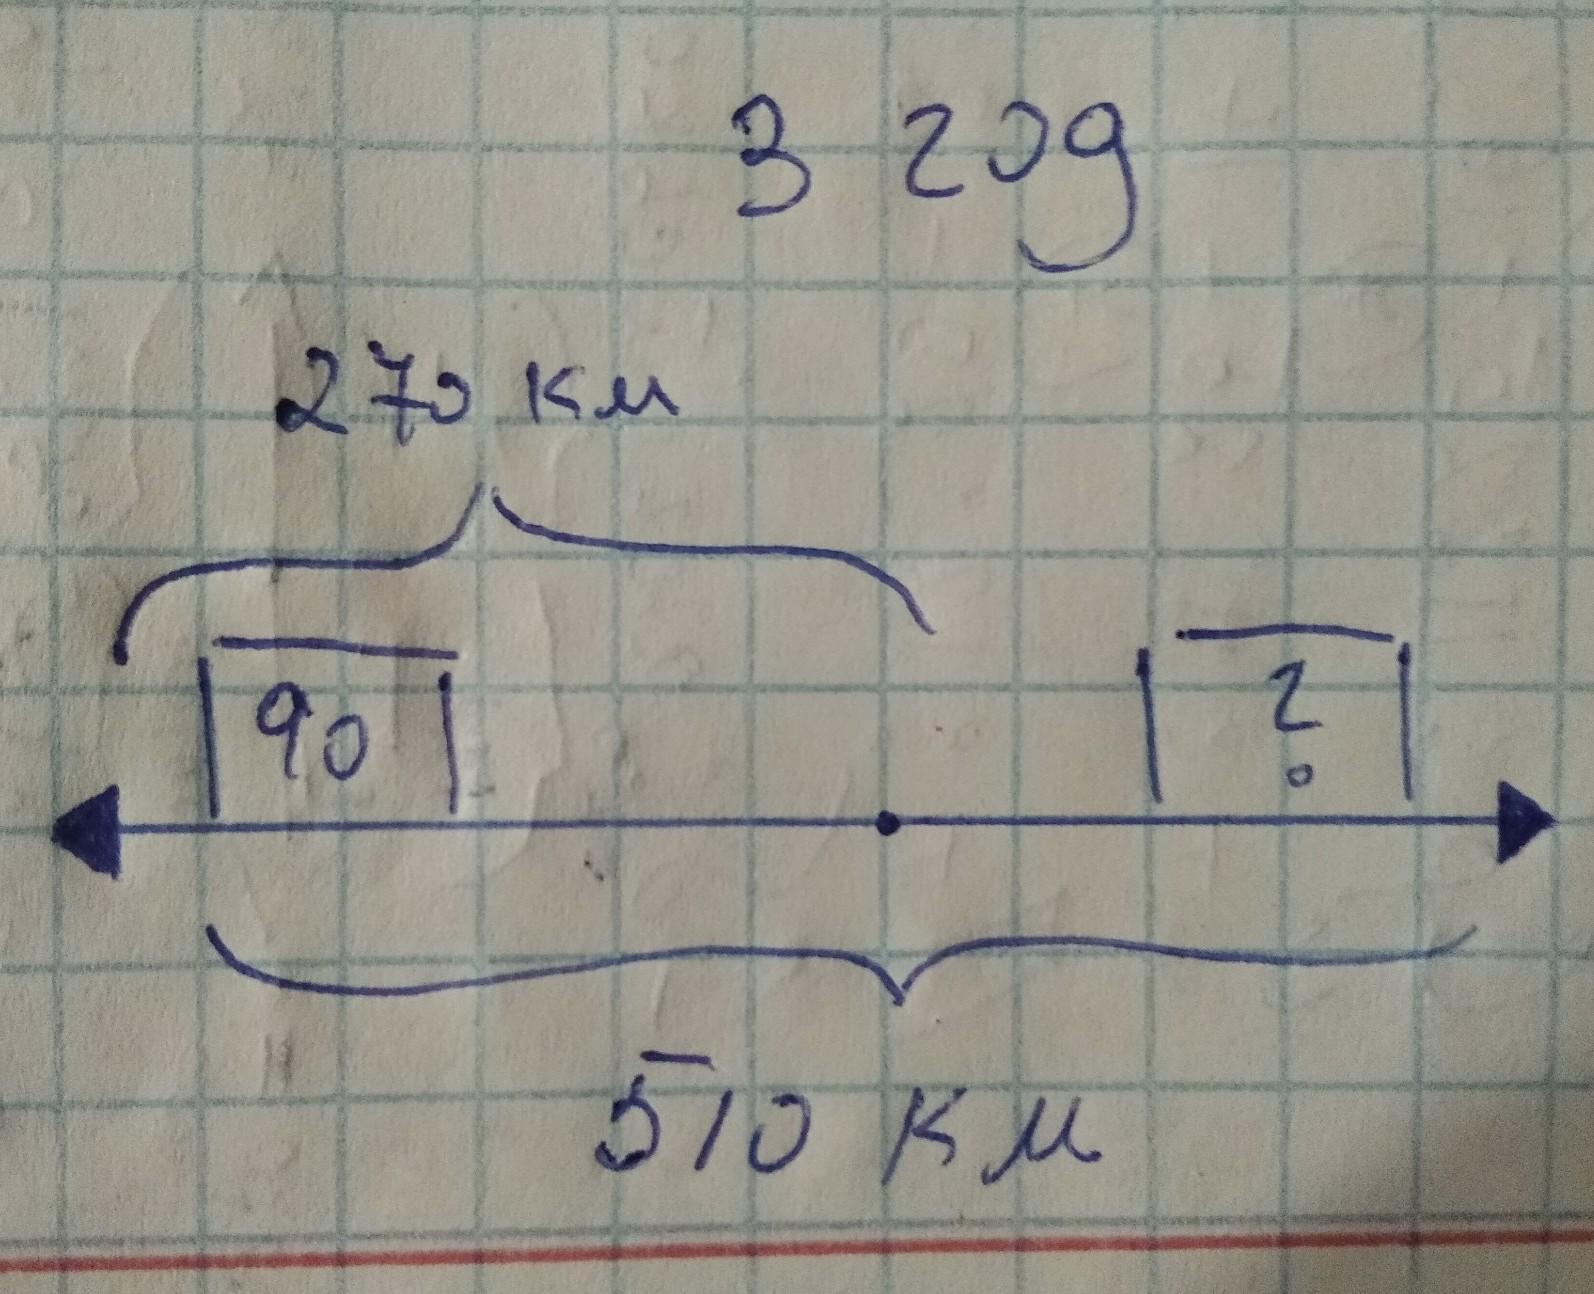 3 год
270 км
90 ?
510 км